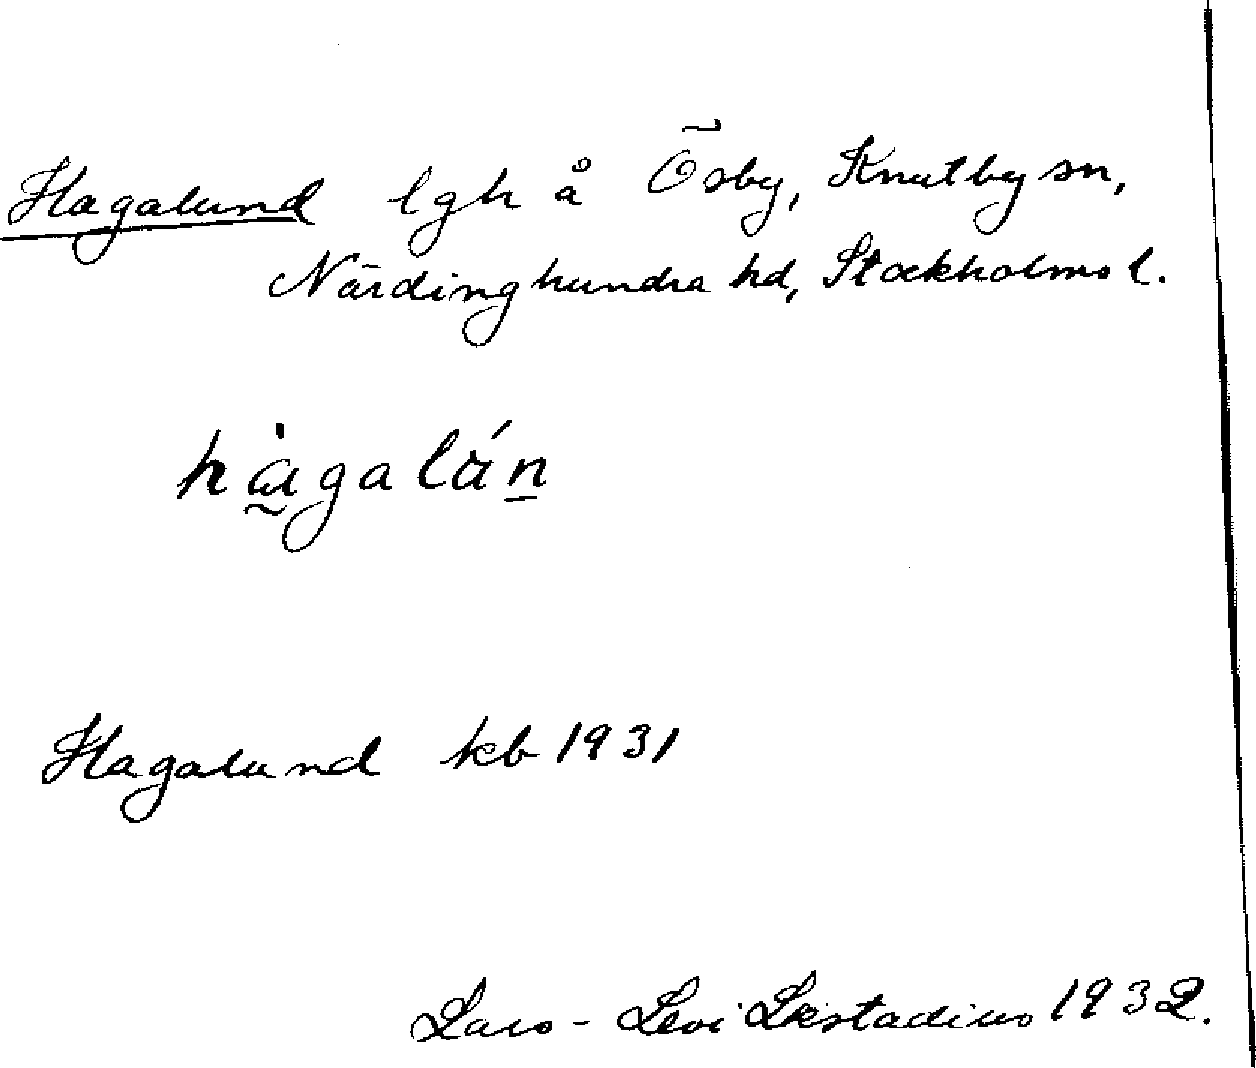 Hagalund lgh å Ösby, Knutby sn,
Närdinghundra hd, Stockholms l.
hàgalán
Hagalund kb 1931
Lars-Levi Læstadius 1932.